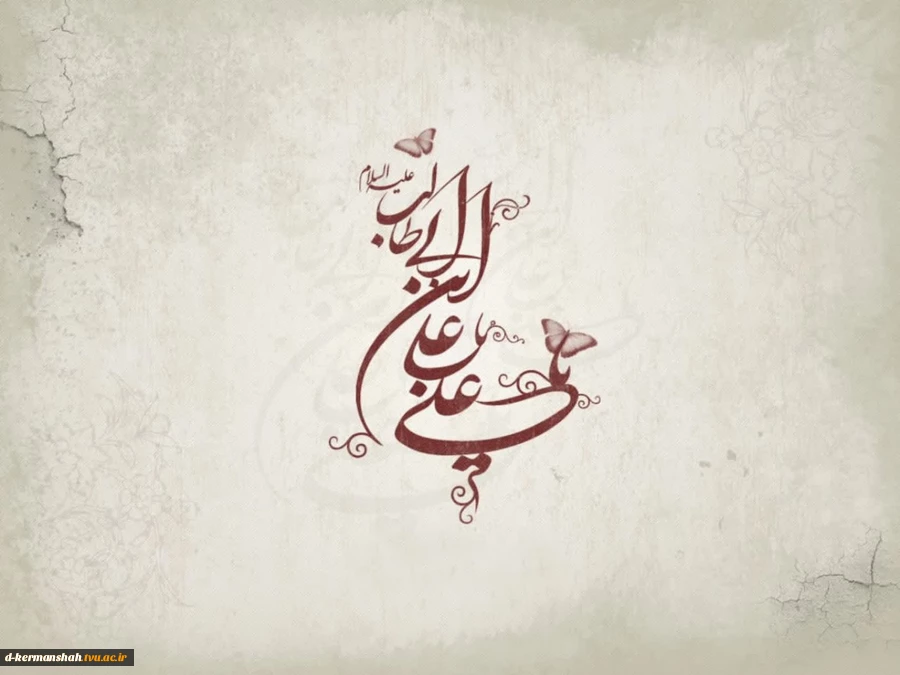 یا علی
یا علی
ابن ابی طالب
علیه السلام
d-kermanshah.tvu.ac.ir